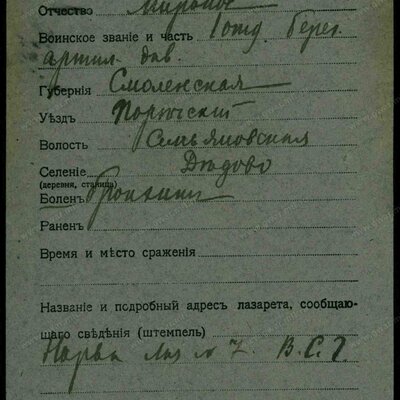 Отчество Мироновъ
Воинское званіе и часть 1 отд. берег.
артил. див.
Губернія Смоленская
Уѣздъ Порѣчскій
Волость Семьяновская
Селеніе Дѣдово
(деревня, станица)
Боленъ Бронхит
Раненъ
Время и мѣсто сраженія
Названіе и подробный адресъ лазарета, сообщаю-
щаго свѣдѣнія (штемпель)
Нарва Лаз № 7. В.С.